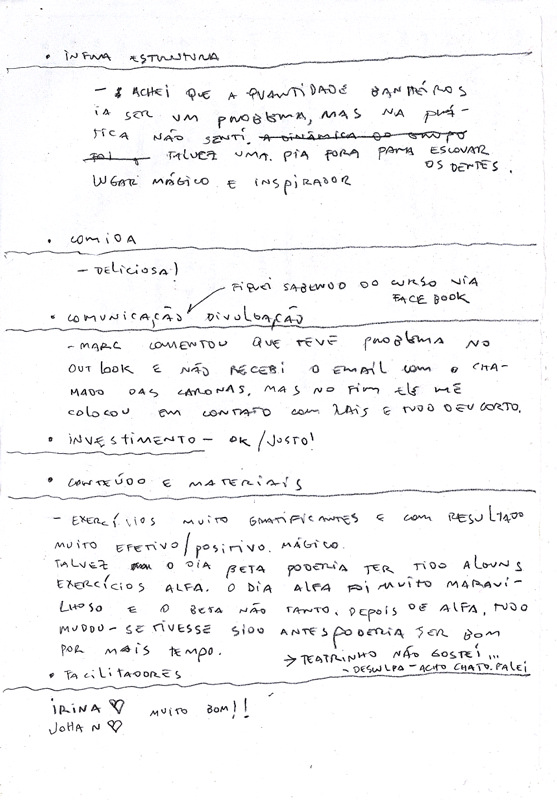 • INFRA ESTRUTURA
- ACHEI QUE A QUANTIDADE BANHEIROS
IA SER UM PROBLEMA, MAS NA PRÁ-
TICA NÃO SENTI. A DINÂMICA DO GRUPO
FOI, TALVEZ UMA PIA FORA PARA ESCOVAR
OS DENTES.
LUGAR MÁGICO E INSPIRADOR
• COMIDA
- DELICIOSA!
FIQUEI SABENDO DO CURSO VIA
FACE BOOK
• COMUNICAÇÃO DIVULGAÇÃO
- MARC COMENTOU QUE TEVE PROBLEMA NO
OUTLOOK E NÃO RECEBI O EMAIL COM O CHA-
MADO DAS CARONAS, MAS NO FIM ELE ME
COLOCOU EM CONTATO COM LAIS E TUDO DEU CERTO.
• INVESTIMENTO - OK/JUSTO!
• CONTEÚDO E MATERIAIS
- EXERCÍSIOS MUITO GRATIFICANTES E COM RESULTADO
MUITO EFETIVO/POSITIVO. MÁGICO.
TALVEZ O DIA BETA PODERIA TER TIDO ALGUNS
EXERCÍCIOS ALFA. O DIA ALFA FOI MUITO MARAVI-
LHOSO E O BETA NÃO TANTO. DEPOIS DE ALFA, TUDO
MUDOU - SE TIVESSE SIDO ANTES PODERIA SER BOM
POR MAIS TEMPO.
→ TEATRINHO NÃO GOSTEI...
- DESCULPA - ACHO CHATO. FALEI
• FACILITADORES
IRINA ♡ MUITO BOM!!
JOHAN ♡